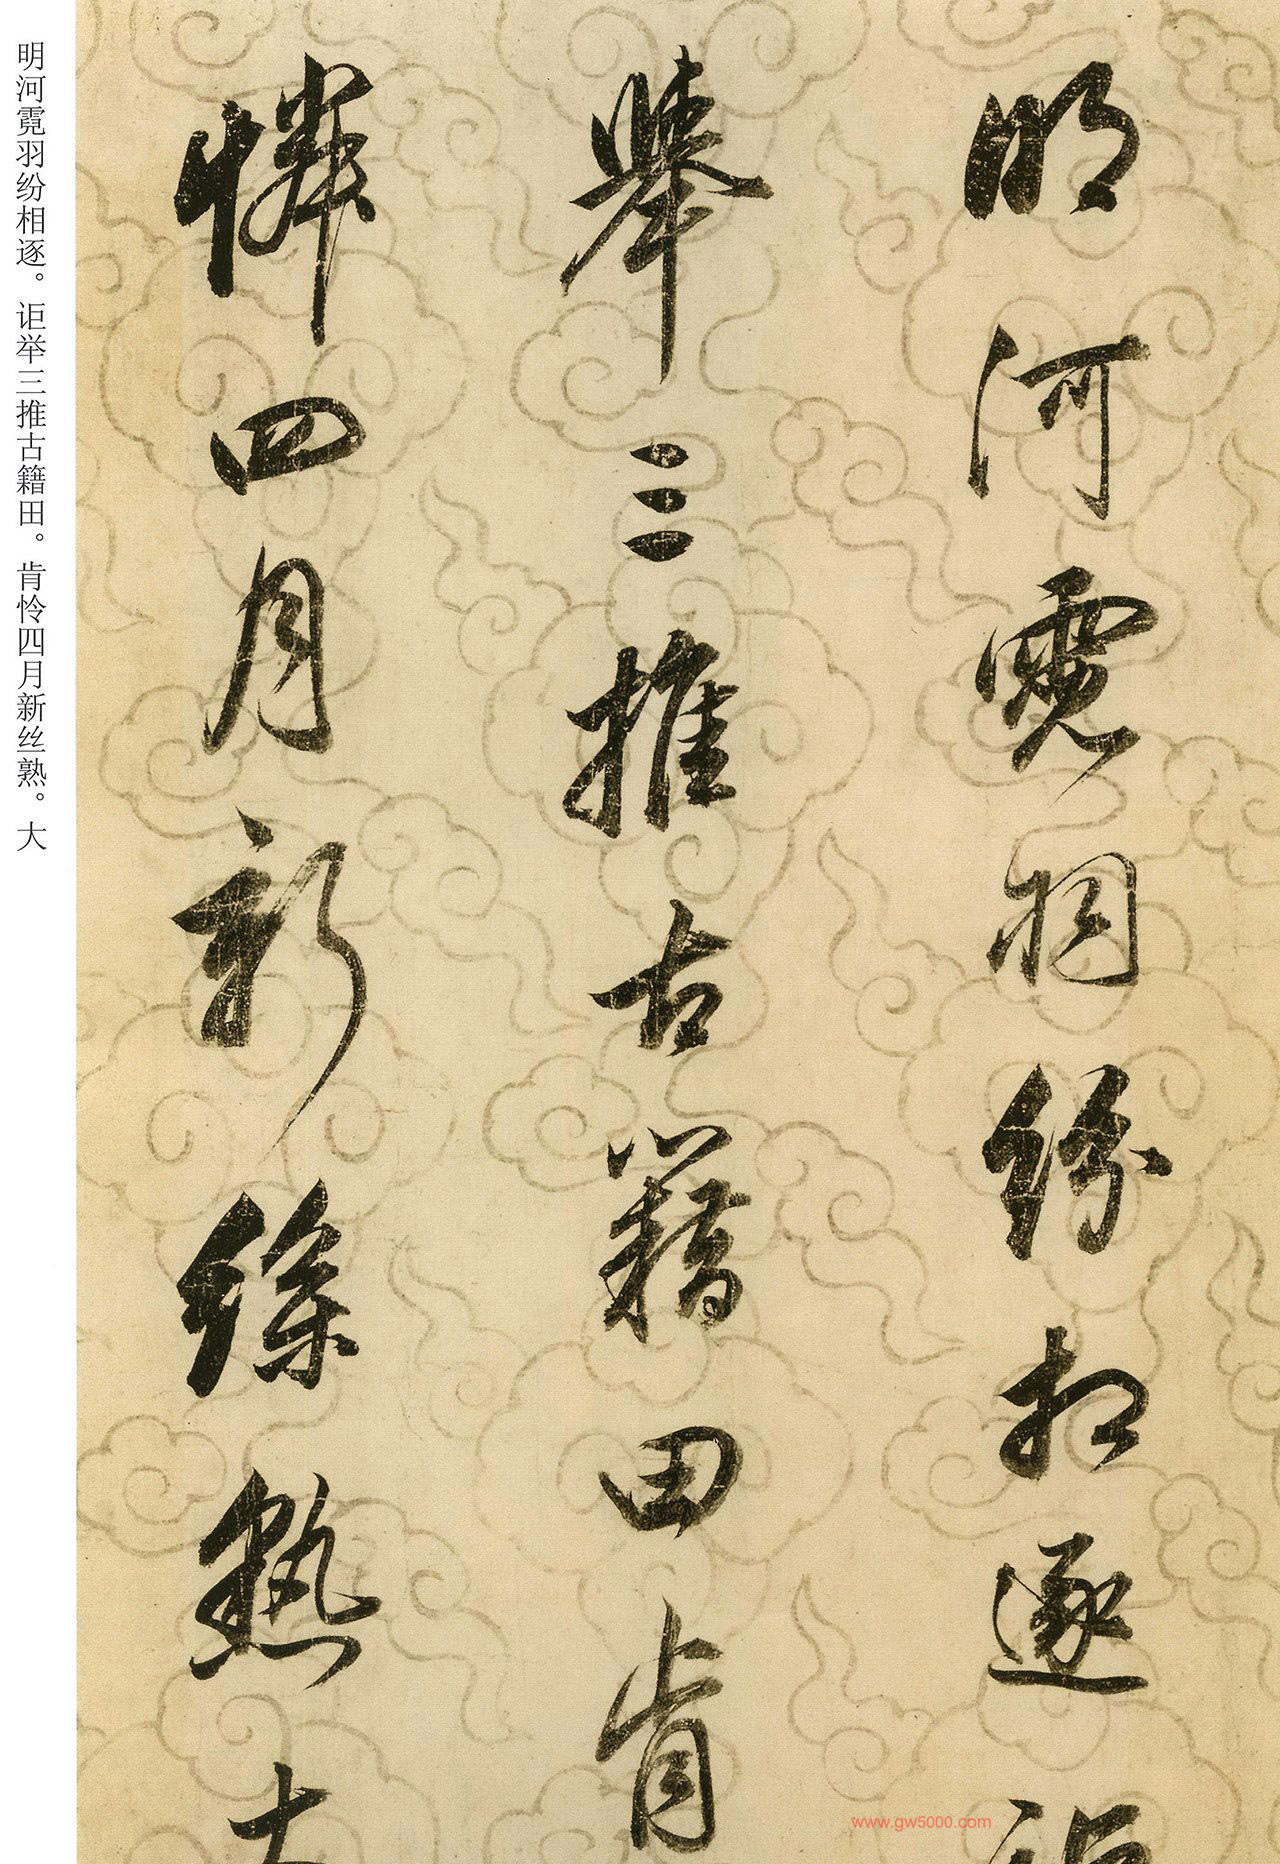 明河霓羽紛相逐詎
舉三推古籍田肯
憐四月新絲熟大
明河霓羽纷相逐。讵举三推古籍田。肯怜四月新丝熟。大
www.gw5000.com